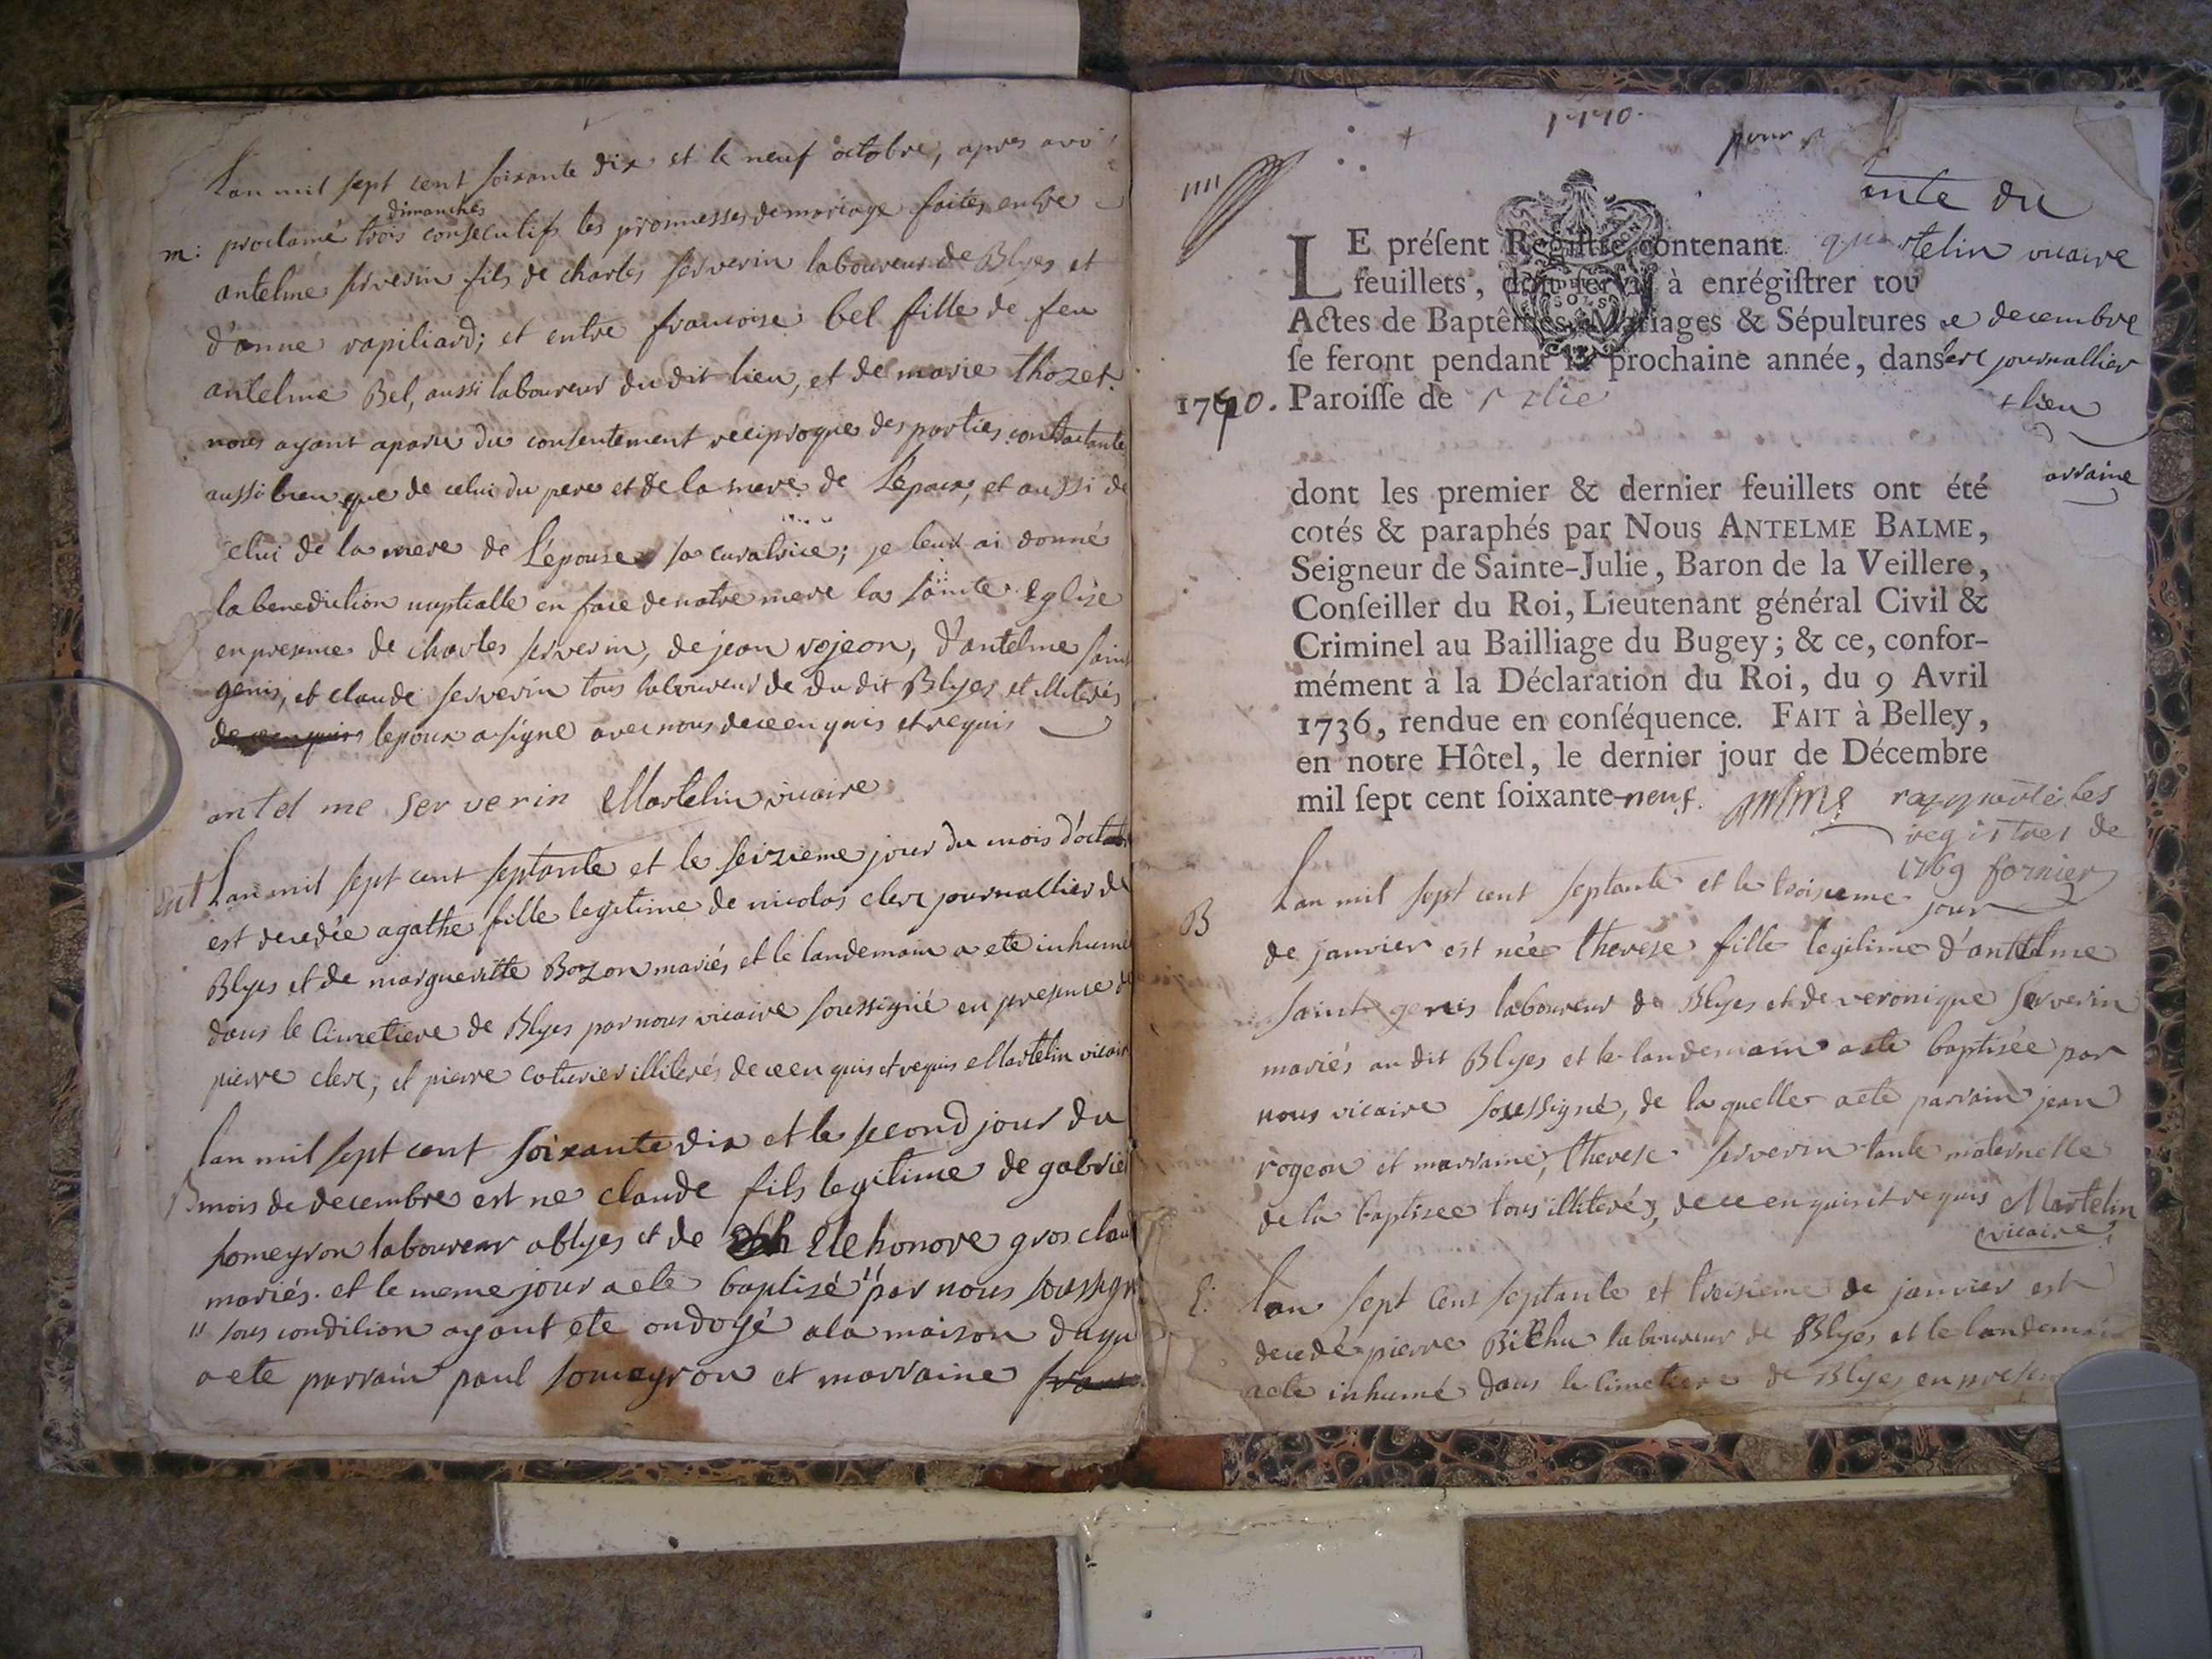 Lan mil sept cent soixante dix et le neuf octobre, apres avoi
dimanches
m: proclamé trois consecutifs les promesses de mariage faites entre
antelme serverin fils de charles serverin laboureur de Blyes et
d'anne rapiliard; et entre francoise bel fille de feu
antelme Bel, aussi laboureur du dit lieu, et de marie thozet
nous ayant aparu du consentement reciproque des parties contractante
aussi bien que de celui du pere et de la mere de L'epoux, et aussi de
celui de la mere de L'epouse sa curatrice; je leur ai donné
la benediction nuptialle en face de notre mere la sainte Eglise
en presence de charles serverin, de jean rojeon, d'antelme saint
genis, et claude serverin tous laboureur de du dit Blyes et illiterés
lepoux a signé avec nous de ce enquis et requis
antel me ser verin Martelin vicaire
Ent Lan mil sept cent septante et le seizieme jour du mois d'octobr
est decedée agathe fille legitime de nicolas clerc journallier de
Blyes et de margueritte Bozon mariés et le landemain a ete inhumé
dans le cimetiere de Blyes par nous vicaire soussigné en presence de
pierre clerc, et pierre coturier illiterés de ce en quis et requis Martelin vicair
lan mil sept cent soixante dix et le second jour du
B mois de decembre est ne claude fils legitime de gabriel
someyron laboureur a blyes et de Elehonore gros claud
mariés. et le meme jour a ete baptisé " par nous soussign
" sous condition ayant ete ondoyé a la maison duqu
a ete parrain paul someyron et marraine
1770.
pour
ente du
LE préſent Regiſtre contenant
telin vicaire
feuillets, dont ſervir à enrégiſtrer tou
Actes de Baptêmes, Mariages & Sépultures
e decembre
ſe feront pendant la prochaine année, dans
lerc journallier
1770. Paroiſſe de
t lieu
arraine
dont les premier & dernier feuillets ont été
cotés & paraphés par Nous ANTELME BALME,
Seigneur de Sainte-Julie, Baron de la Veillere,
Conſeiller du Roi, Lieutenant général Civil &
Criminel au Bailliage du Bugey; & ce, confor-
mément à la Déclaration du Roi, du 9 Avril
1736, rendue en conſéquence. FAIT à Belley,
en notre Hôtel, le dernier jour de Décembre
mil ſept cent ſoixante-neuf.
rapporté les
registres de
1769 fornier
B Lan mil sept cent septante et le troisieme jour
de janvier est née therese fille legitime d'antelme
saint genis laboureur de Blyes et de veronique serverin
mariés au dit Blyes et le landemain a ete baptisée par
nous vicaire soussigné, de laquelle a ete parrain jean
rogeon et marraine, therese serverin tante maternelle
de la baptisee tous illiterés, de ce enquis et requis Martelin
vicaire
E: lan sept cent septante et troisieme de janvier est
decedé pierre Bichu laboureur de Blyes, et le landemain
a ete inhumé dans le cimetiere de Blyes en presen